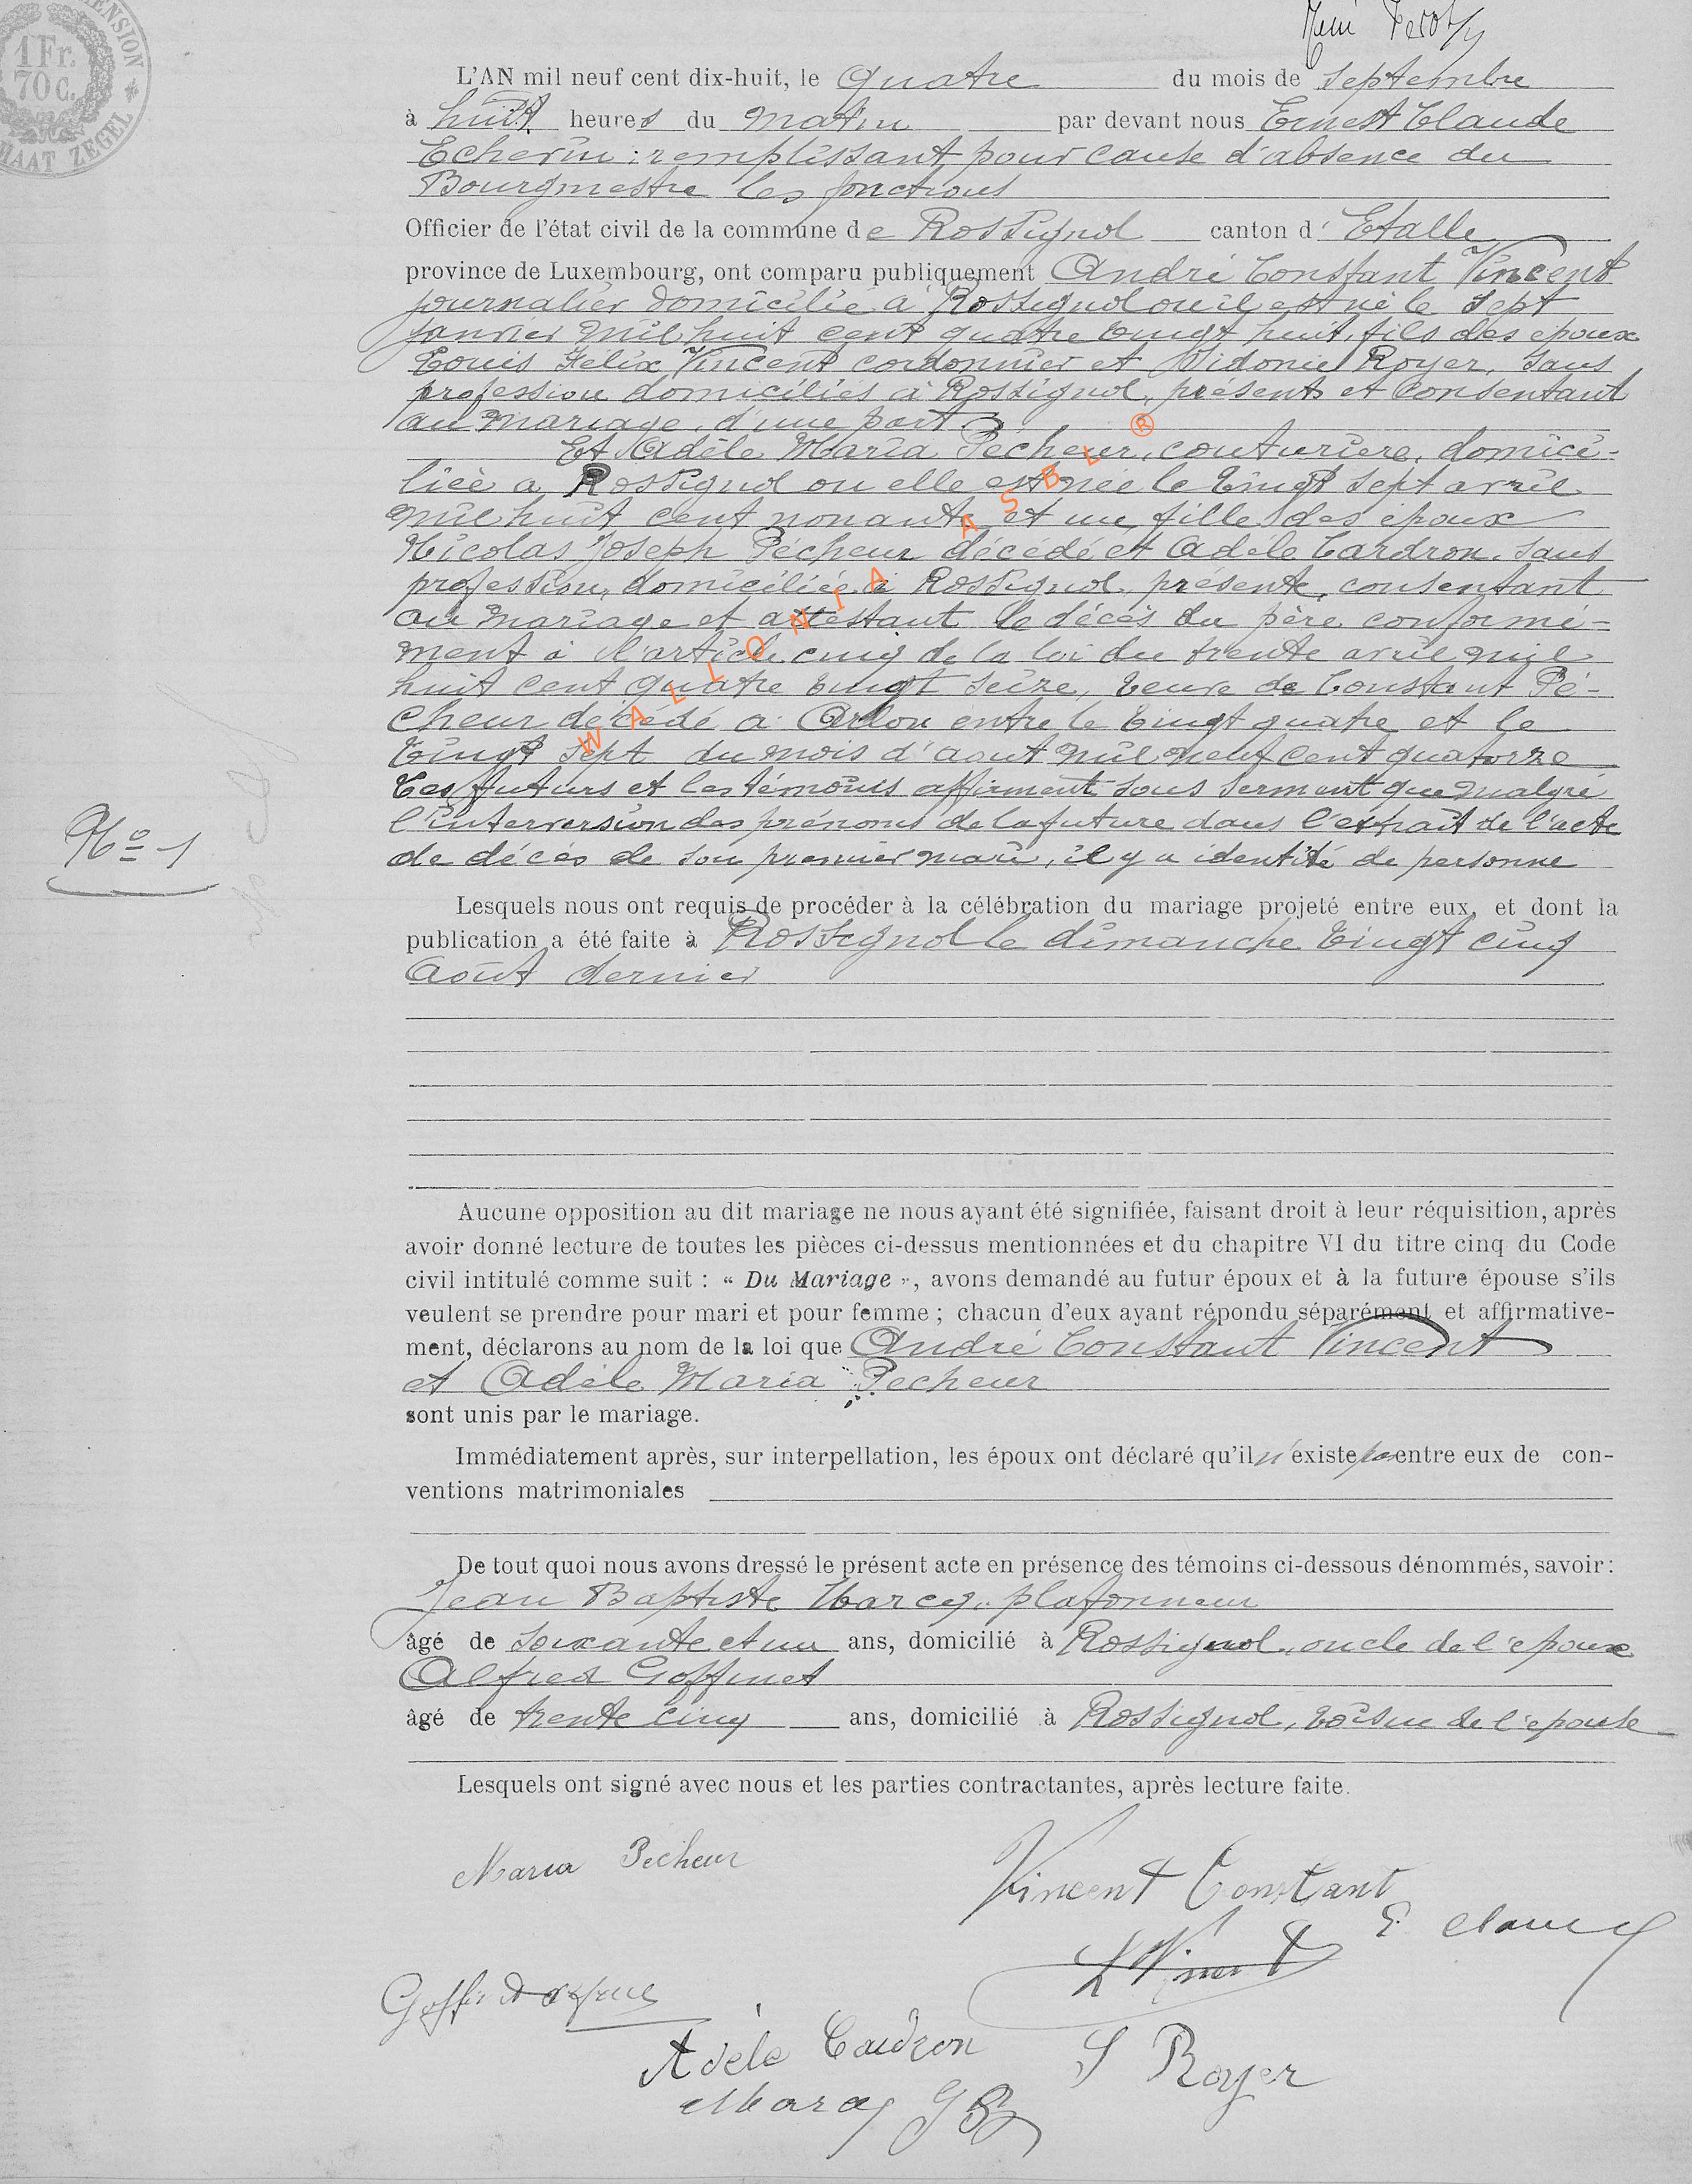 1 Fr.
70 c.
ZEGEL
L'AN mil neuf cent dix-huit, le quatre du mois de septembre
à huit heures du matin par devant nous Ernest Claude
Echevin : remplissant pour cause d'absence du
Bourgmestre les fonctions
Officier de l'état civil de la commune de Rossignol canton d' Etalle
province de Luxembourg, ont comparu publiquement André Constant Vincent
journalier domicilié à Rossignol où il est né le sept
janvier mil huit cent quatre vingt huit, fils des époux
Louis Felix Vincent cordonnier et Sidonie Royer, sans
profession domiciliés à Rossignol, présents et consentant
au mariage, d'une part
Et Adèle Maria Pécheur, couturière, domici-
liée à Rossignol ou elle est née le vingt sept avril
mil huit cent nonante et un fille des époux
Nicolas Joseph Pécheur décédé et Adèle Cardron, sans
profession, domiciliée à Rossignol, présente, consentant
au mariage et attestant le décès du père conformé-
ment à l'article cinq de la loi du trente avril mil
huit cent quatre vingt seize, veuve de Constant Pé-
cheur décédé à Arlon entre le vingt quatre et le
vingt sept du mois d'aout mil neuf cent quatorze
Les futurs et les témoins affirment sous serment que malgré
l'interversion des prénoms de la future dans l'extrait de l'acte
de décès de son premier mari, il y a identité de personne
No 1
WALLONIA ASBL ®
Lesquels nous ont requis de procéder à la célébration du mariage projeté entre eux, et dont la
publication a été faite à Rossignol le dimanche vingt cinq
Août dernier
Aucune opposition au dit mariage ne nous ayant été signifiée, faisant droit à leur réquisition, après
avoir donné lecture de toutes les pièces ci-dessus mentionnées et du chapitre VI du titre cinq du Code
civil intitulé comme suit : « Du Mariage », avons demandé au futur époux et à la future épouse s'ils
veulent se prendre pour mari et pour femme ; chacun d'eux ayant répondu séparément et affirmative-
ment, déclarons au nom de la loi que André Constant Vincent
et Adèle Maria Pecheur
sont unis par le mariage.
Immédiatement après, sur interpellation, les époux ont déclaré qu'il n'existe pas entre eux de con-
ventions matrimoniales
De tout quoi nous avons dressé le présent acte en présence des témoins ci-dessous dénommés, savoir :
Jean Baptiste Marcy, plafonneur
âgé de soixante et un ans, domicilié à Rossignol, oncle de l'époux
Alfred Goffinet
âgé de trente cinq ans, domicilié à Rossignol, voisin de l'épouse
Lesquels ont signé avec nous et les parties contractantes, après lecture faite.
Maria Pécheur
Vincent Constant
E. Claude
L Vincent
Adèle Caudron
S Royer
Marcy J B